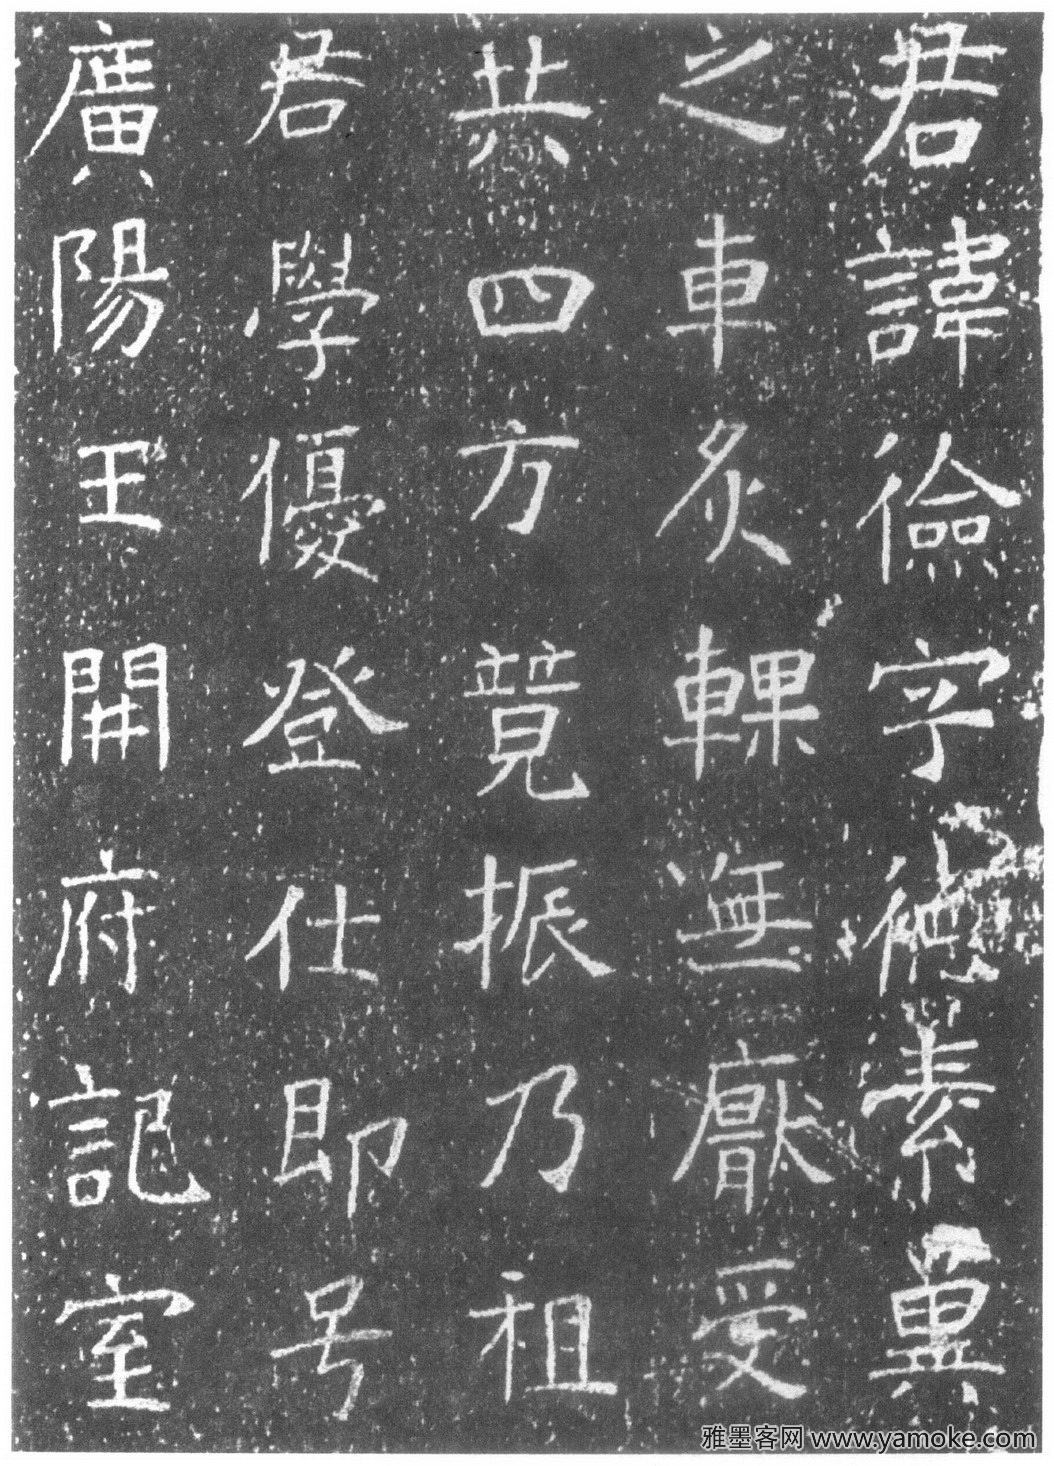 君諱儉字德素冀
之車炙輠無猒受
共四方競振乃祖
君學優登仕即号
廣陽王開府記室
雅墨客网 www.yamoke.com